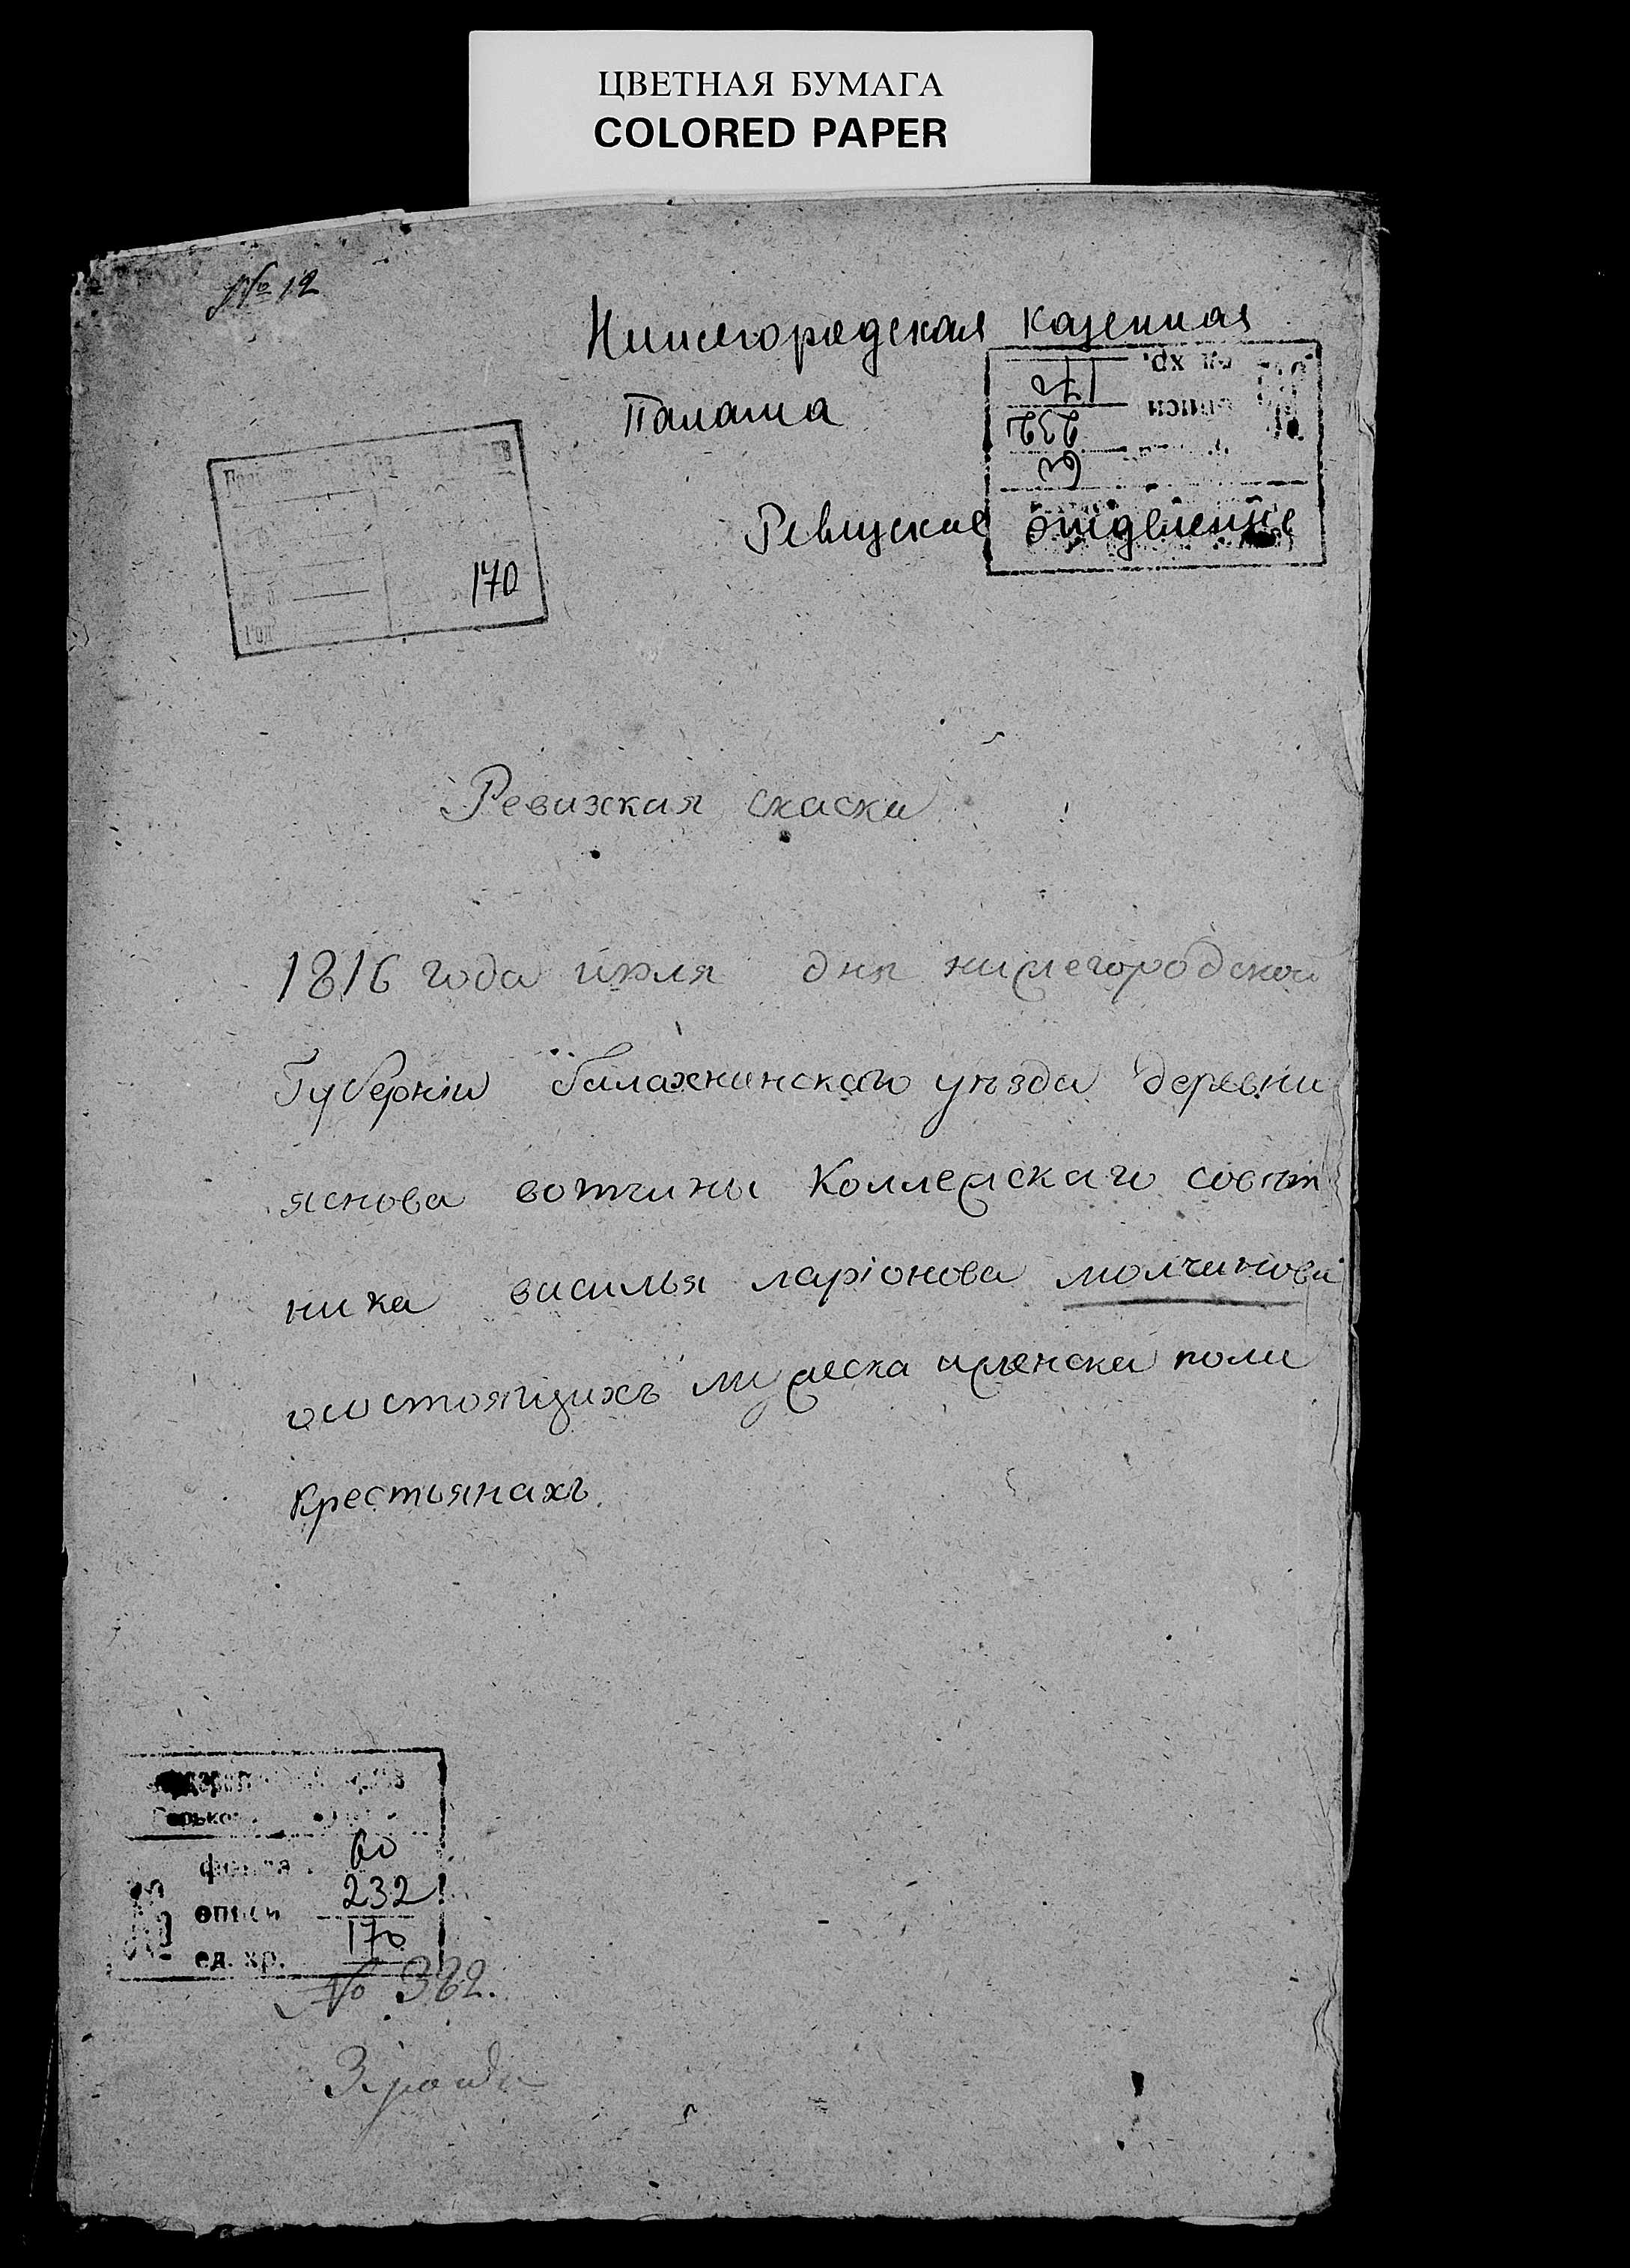 ЦВЕТНАЯ БУМАГА
COLORED PAPER
№ 12
Нижегородская казенная
Палата
Ревизское отделение
170
Ревизкая скаска
1816 года июля дня нижегородской
Губерніи балахнинскаго уѣзда деревни
яснова вотчины Коллежскаго совѣт
ника василья ларіонова молчинова
осостоящихъ мужеска иженска пола
крестьянахъ
60
описи 232
ед. хр. 170
№ 382.